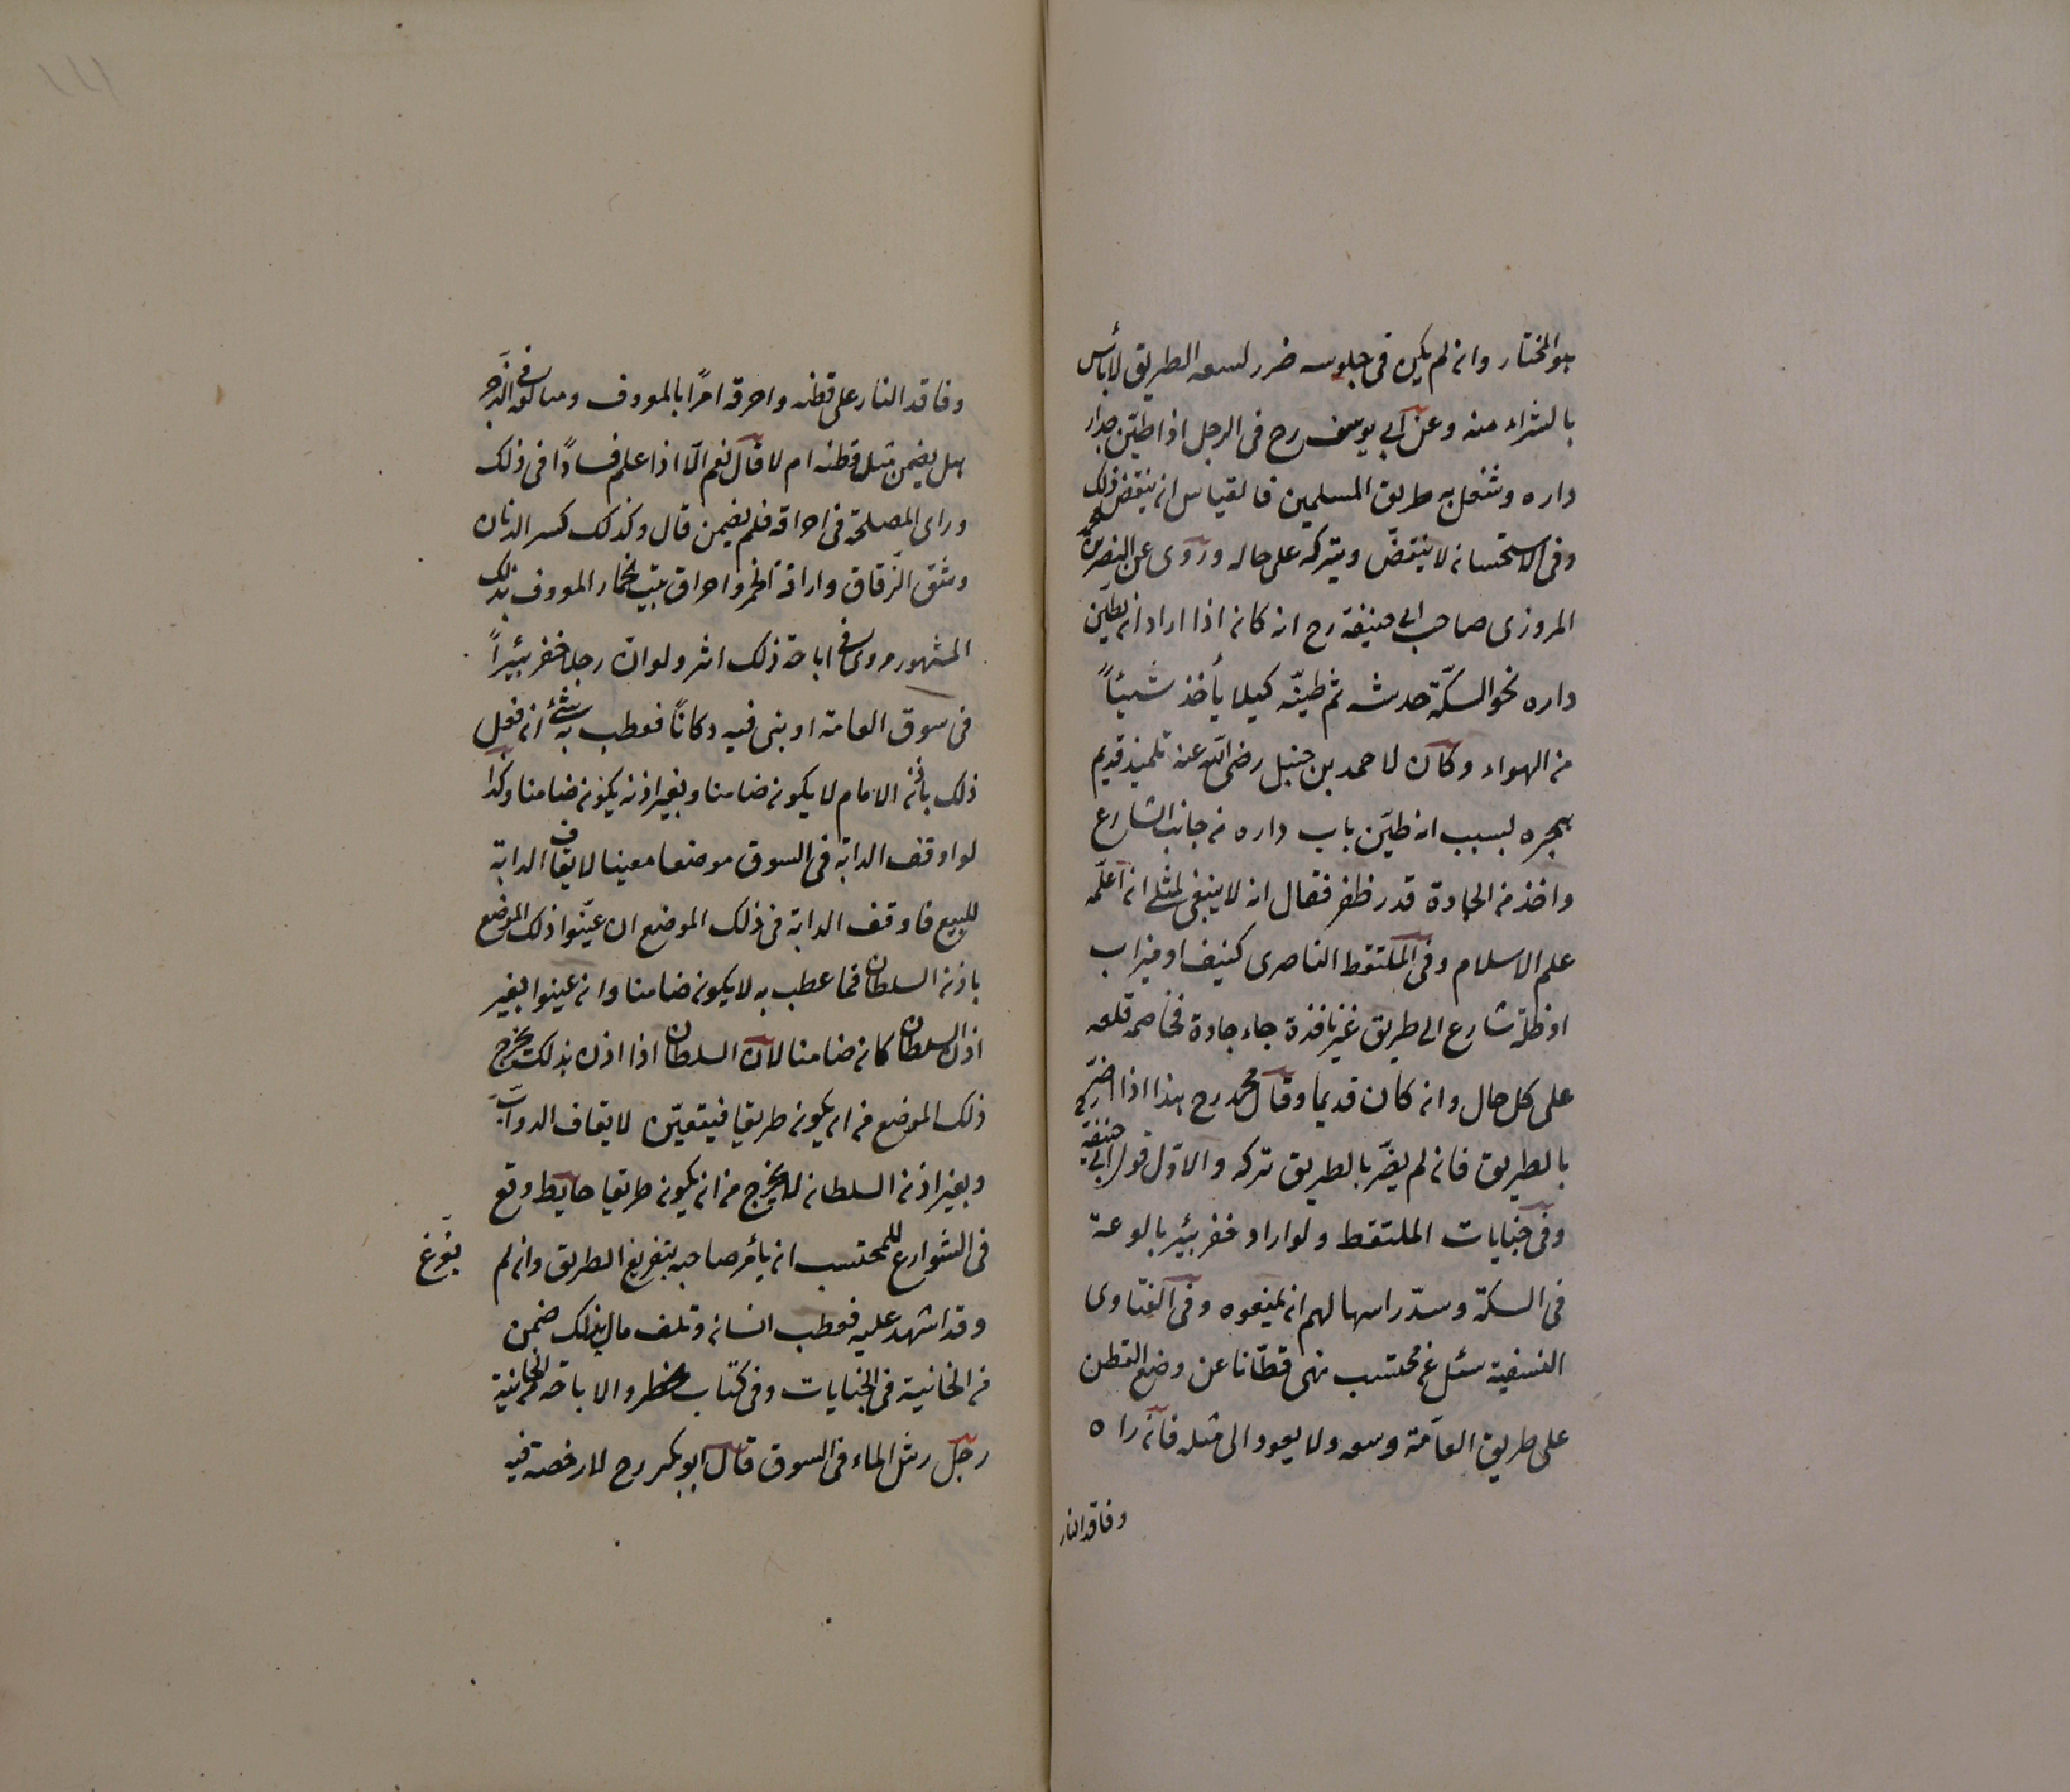 هو المختار وان لم يكن فى جلوسه ضرر لسعه الطريق لا بأس
بالشراء منه وعن ابى يوسف رح فى الرجل اذا طيّن جدار
داره وشغل به طريق المسلمين فالقياس ان ينقض ذلك
وفى الاستحسان لا ينقض ويتركه على حاله وروى عن النصر بن محمد
المروزى صاحب ابى حنيفة رح انه كان اذا اراد ان يطيّن
داره نحو السكّة خدشه ثم طيّنه كيلا يأخذ شيئاً
من الهواء وكان لاحمد بن حنبل رضى الله عنه تلميذ قديم
هجره بسبب انه طيّن باب داره من جانب الشارع
واخذ من الجادة قدر ظفر فقال انه لا ينبغى لمثلى ان اعلّمه
علم الاسلام وفى الملتقط الناصرى كنيف او ميزاب
او ظلّة شارع الى طريق غير نافذة جاء جادة فخاصمه قلعه
على كل حال وان كان قديما وقال محمد رح هذا اذا اضرّ
بالطريق فان لم يضرّ بالطريق تركه والاوّل قول ابى حنيفة
وفى جنايات الملتقط ولو اراد حفر بئير بالوعة
فى السكة وسدّ راسها لهم ان يمنعوه وفى الفتاوى
النسفية سئل عن محتسب نهى قطّانا عن وضع القطن
على طريق العامّة وسعه ولا يعود الى مثله فانه راه
وفاقد النار
وفاقد النار على قطنه واحرقه امرًا بالمعروف ومبالغه فى الزجر
هل يضمن مثل قطنه ام لا قال نعم الّا اذا علم فسادًا فى ذلك
وراى المصلحة فى احراقه فلم يضمن قال وكذلك كسر الدنان
وشق الزقاق واراقة الخمر واحراق بيت الخمار المعروف بذلك
المشهور مروى فى اباحة ذلك اثر ولو ان رجلا حفر بئيراً
فى سوق العامة او بنى فيه دكاناً فعطب به شئ ان فعل
ذلك باذن الامام لا يكون ضامنا وبغير اذنه يكون ضامنا وكذا
لو اوقف الدابة فى السوق موضعا معينا لايقاف الدابة
للبيع فاوقف الدابة فى ذلك الموضع ان عيّنوا ذلك الموضع
باذن السلطان فما عطب به لا يكون ضامنا وان عينوا بغير
اذن السلطان كان ضامنا لان السلطان اذا اذن بذلك يخرج
ذلك الموضع من ان يكون طريقا فيتعيّن لايقاف الدوابّ
وبغير اذن السلطان لا يخرج من ان يكون طريقا حايط وقع
فى الشوارع للمحتسب ان يأمر صاحبه بتفريغ الطريق وان لم
يفرّغ
وقد اشهد عليه فعطب انسان وتلف مال بذلك ضمن
من الخانية فى الجنايات وفى كتاب الحظر والاباحة من الخانية
رجل رش الماء فى السوق قال ابو بكر رح لا رخصة فيه